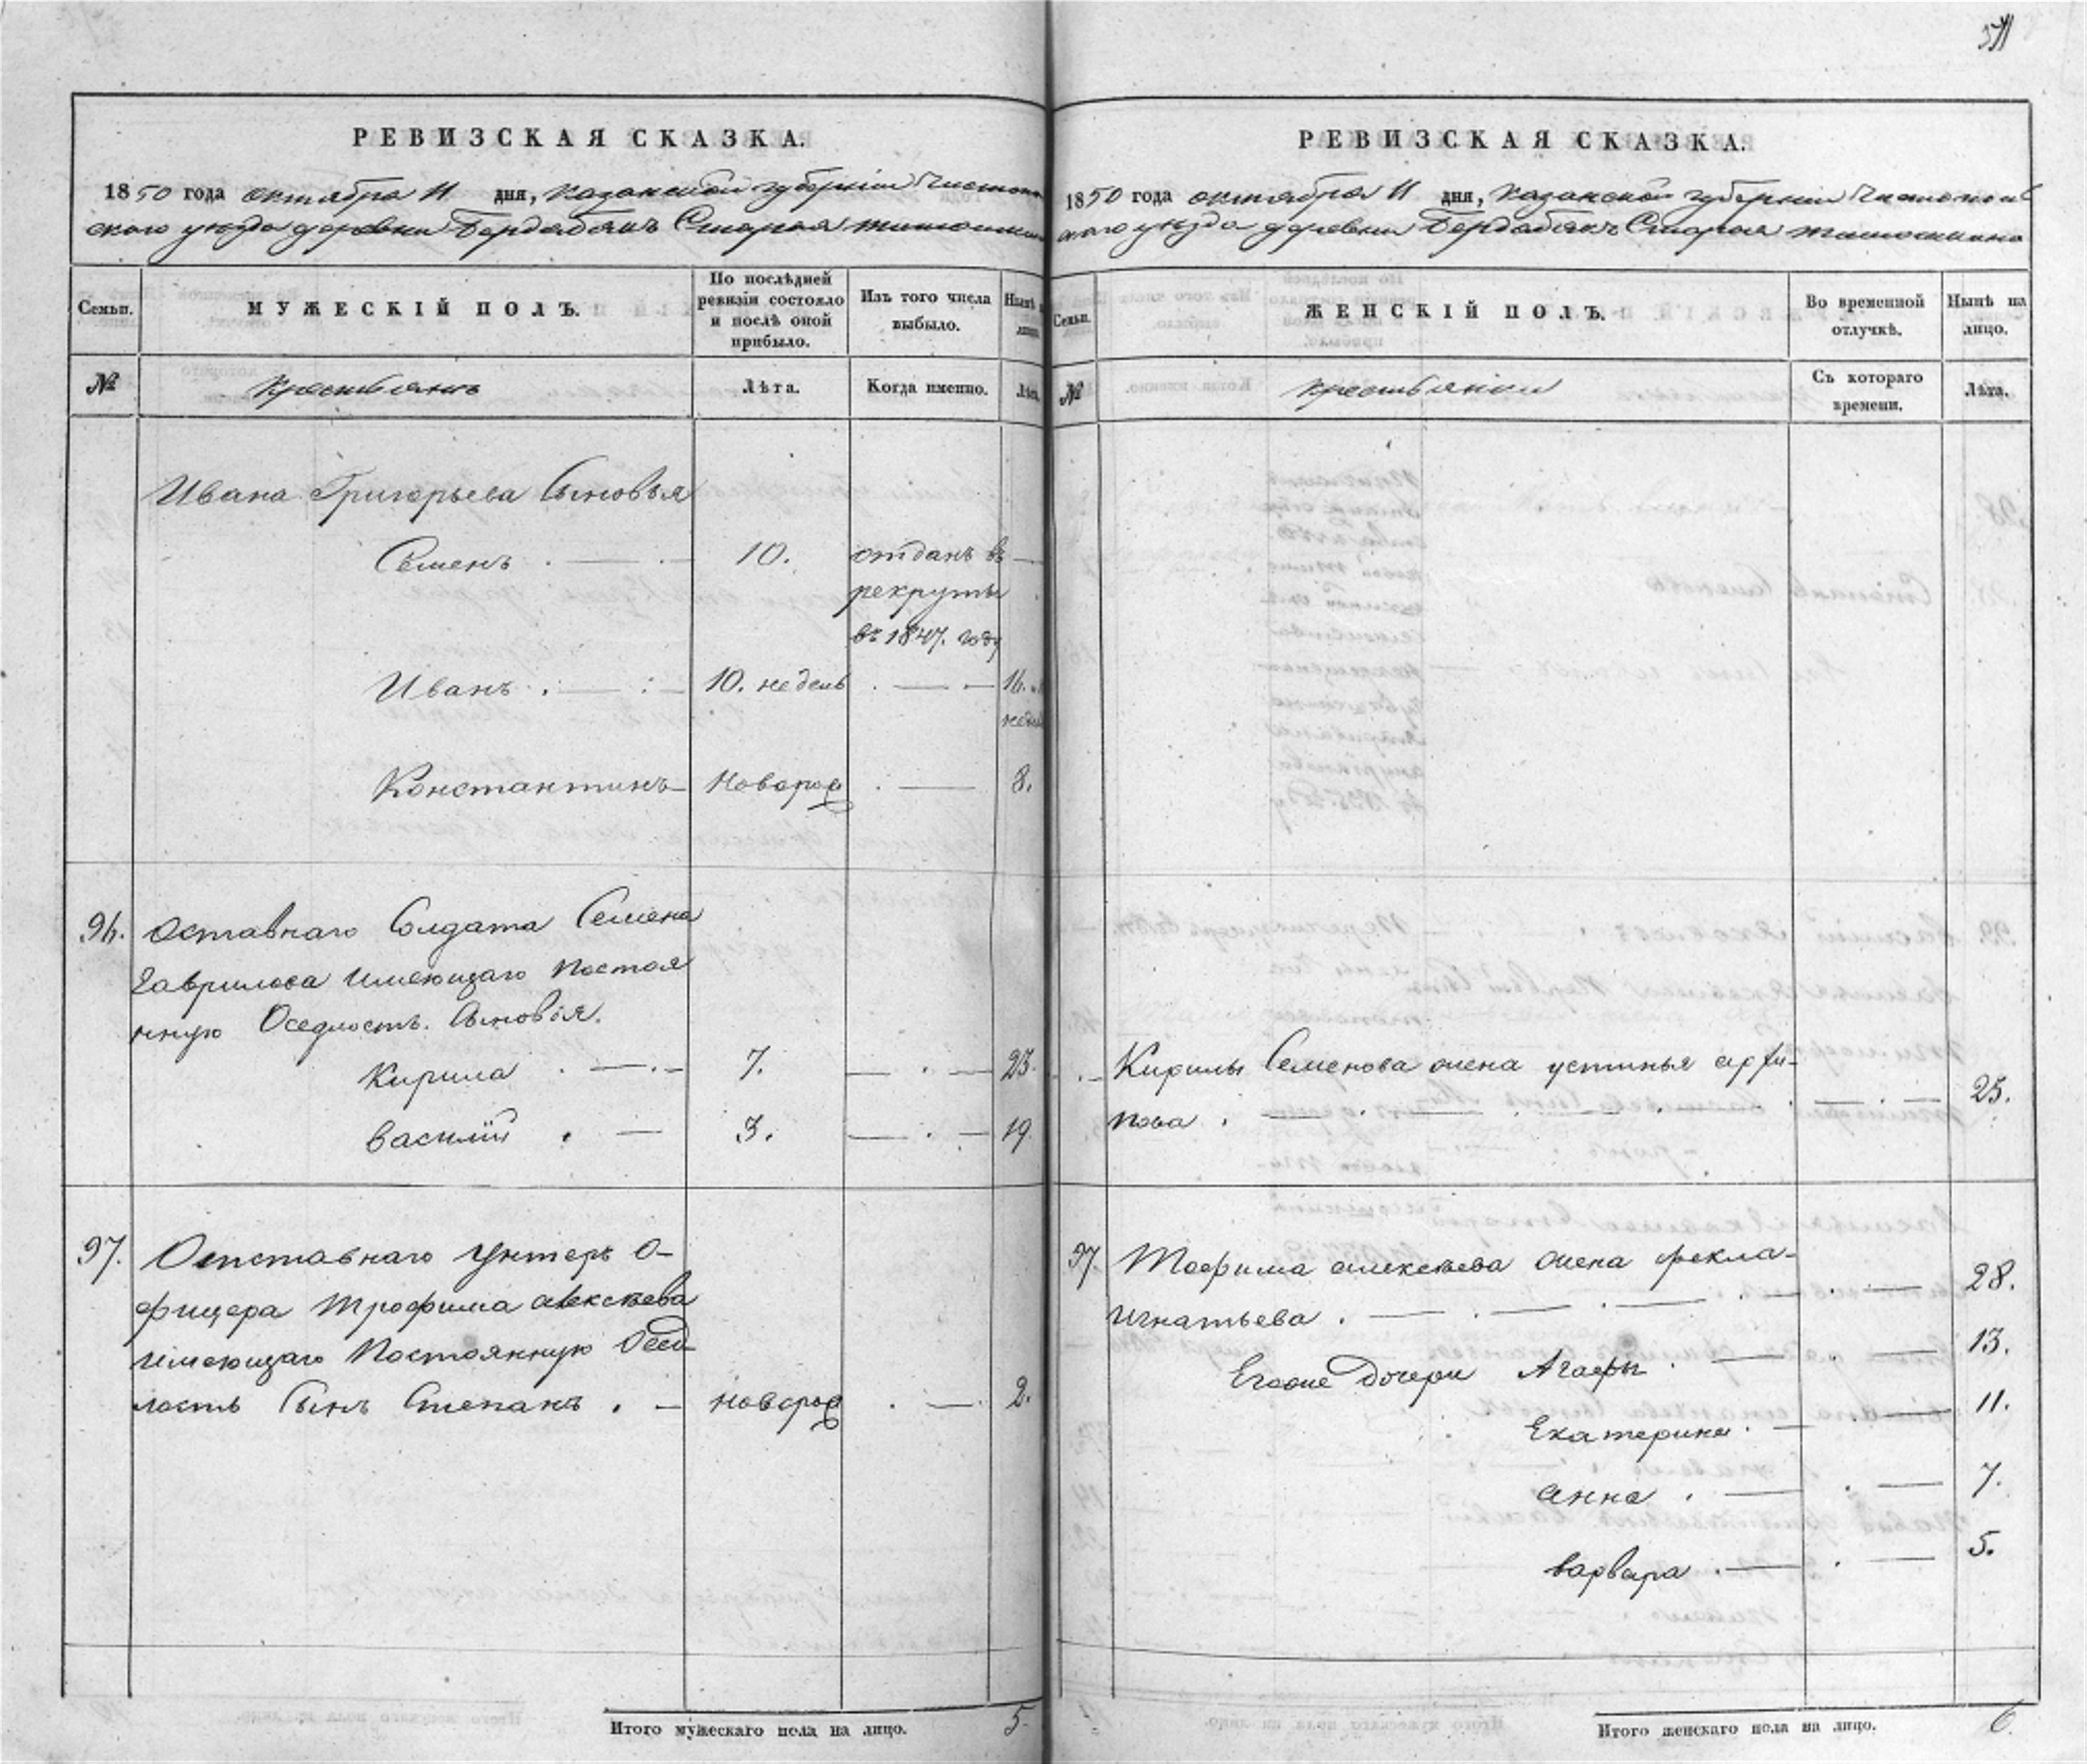 РЕВИЗСКАЯ СКАЗКА.
1850 года октября 11 дня, Казанской губернии Чистополь
скаго уезда деревни Бердебякъ Старая тожъ
Семьи.
МУЖЕСКІЙ ПОЛЪ.
По послѣдней ревизіи состояло и послѣ оной прибыло.
Изъ того числа выбыло.
Нынѣ
№
Крестьянъ
Лѣта.
Когда именно.
Лѣта
Ивана Григорьева Сыновья
Семенъ 10. отданъ въ
рекруты
въ 1847. году
Иванъ 10. недель 16.
недел
Константинъ Новорож 8.
96. Отставнаго Солдата Семена
Гаврилова имеющаго постоя
нную Оседлость. Сыновія.
Кирила 7. 23.
Василій 3. 19
97. Отставнаго Унтеръ О-
фицера Трофима алексѣева
имеющаго Постоянную Осед
лость Сынъ Степанъ новорож 2.
Итого мужескаго пола на лицо. 5.
РЕВИЗСКАЯ СКАЗКА.
1850 года октября 11 дня, Казанской губерніи Чистополь
скаго уѣзда деревни Бердебякъ Старая
Семьи.
ЖЕНСКІЙ ПОЛЪ.
Во временной отлучкѣ.
Нынѣ на лицо.
№
Крестьянки
Съ котораго времени.
Лѣта.
Кирилы Семенова жена устинья архи-
пова 25.
97. Трофима алексѣева жена фекла
игнатьева 28.
Егоже Дочери Агафья 13.
Екатерина 11.
анна 7.
варвара 5.
Итого женскаго пола на лицо. 6.